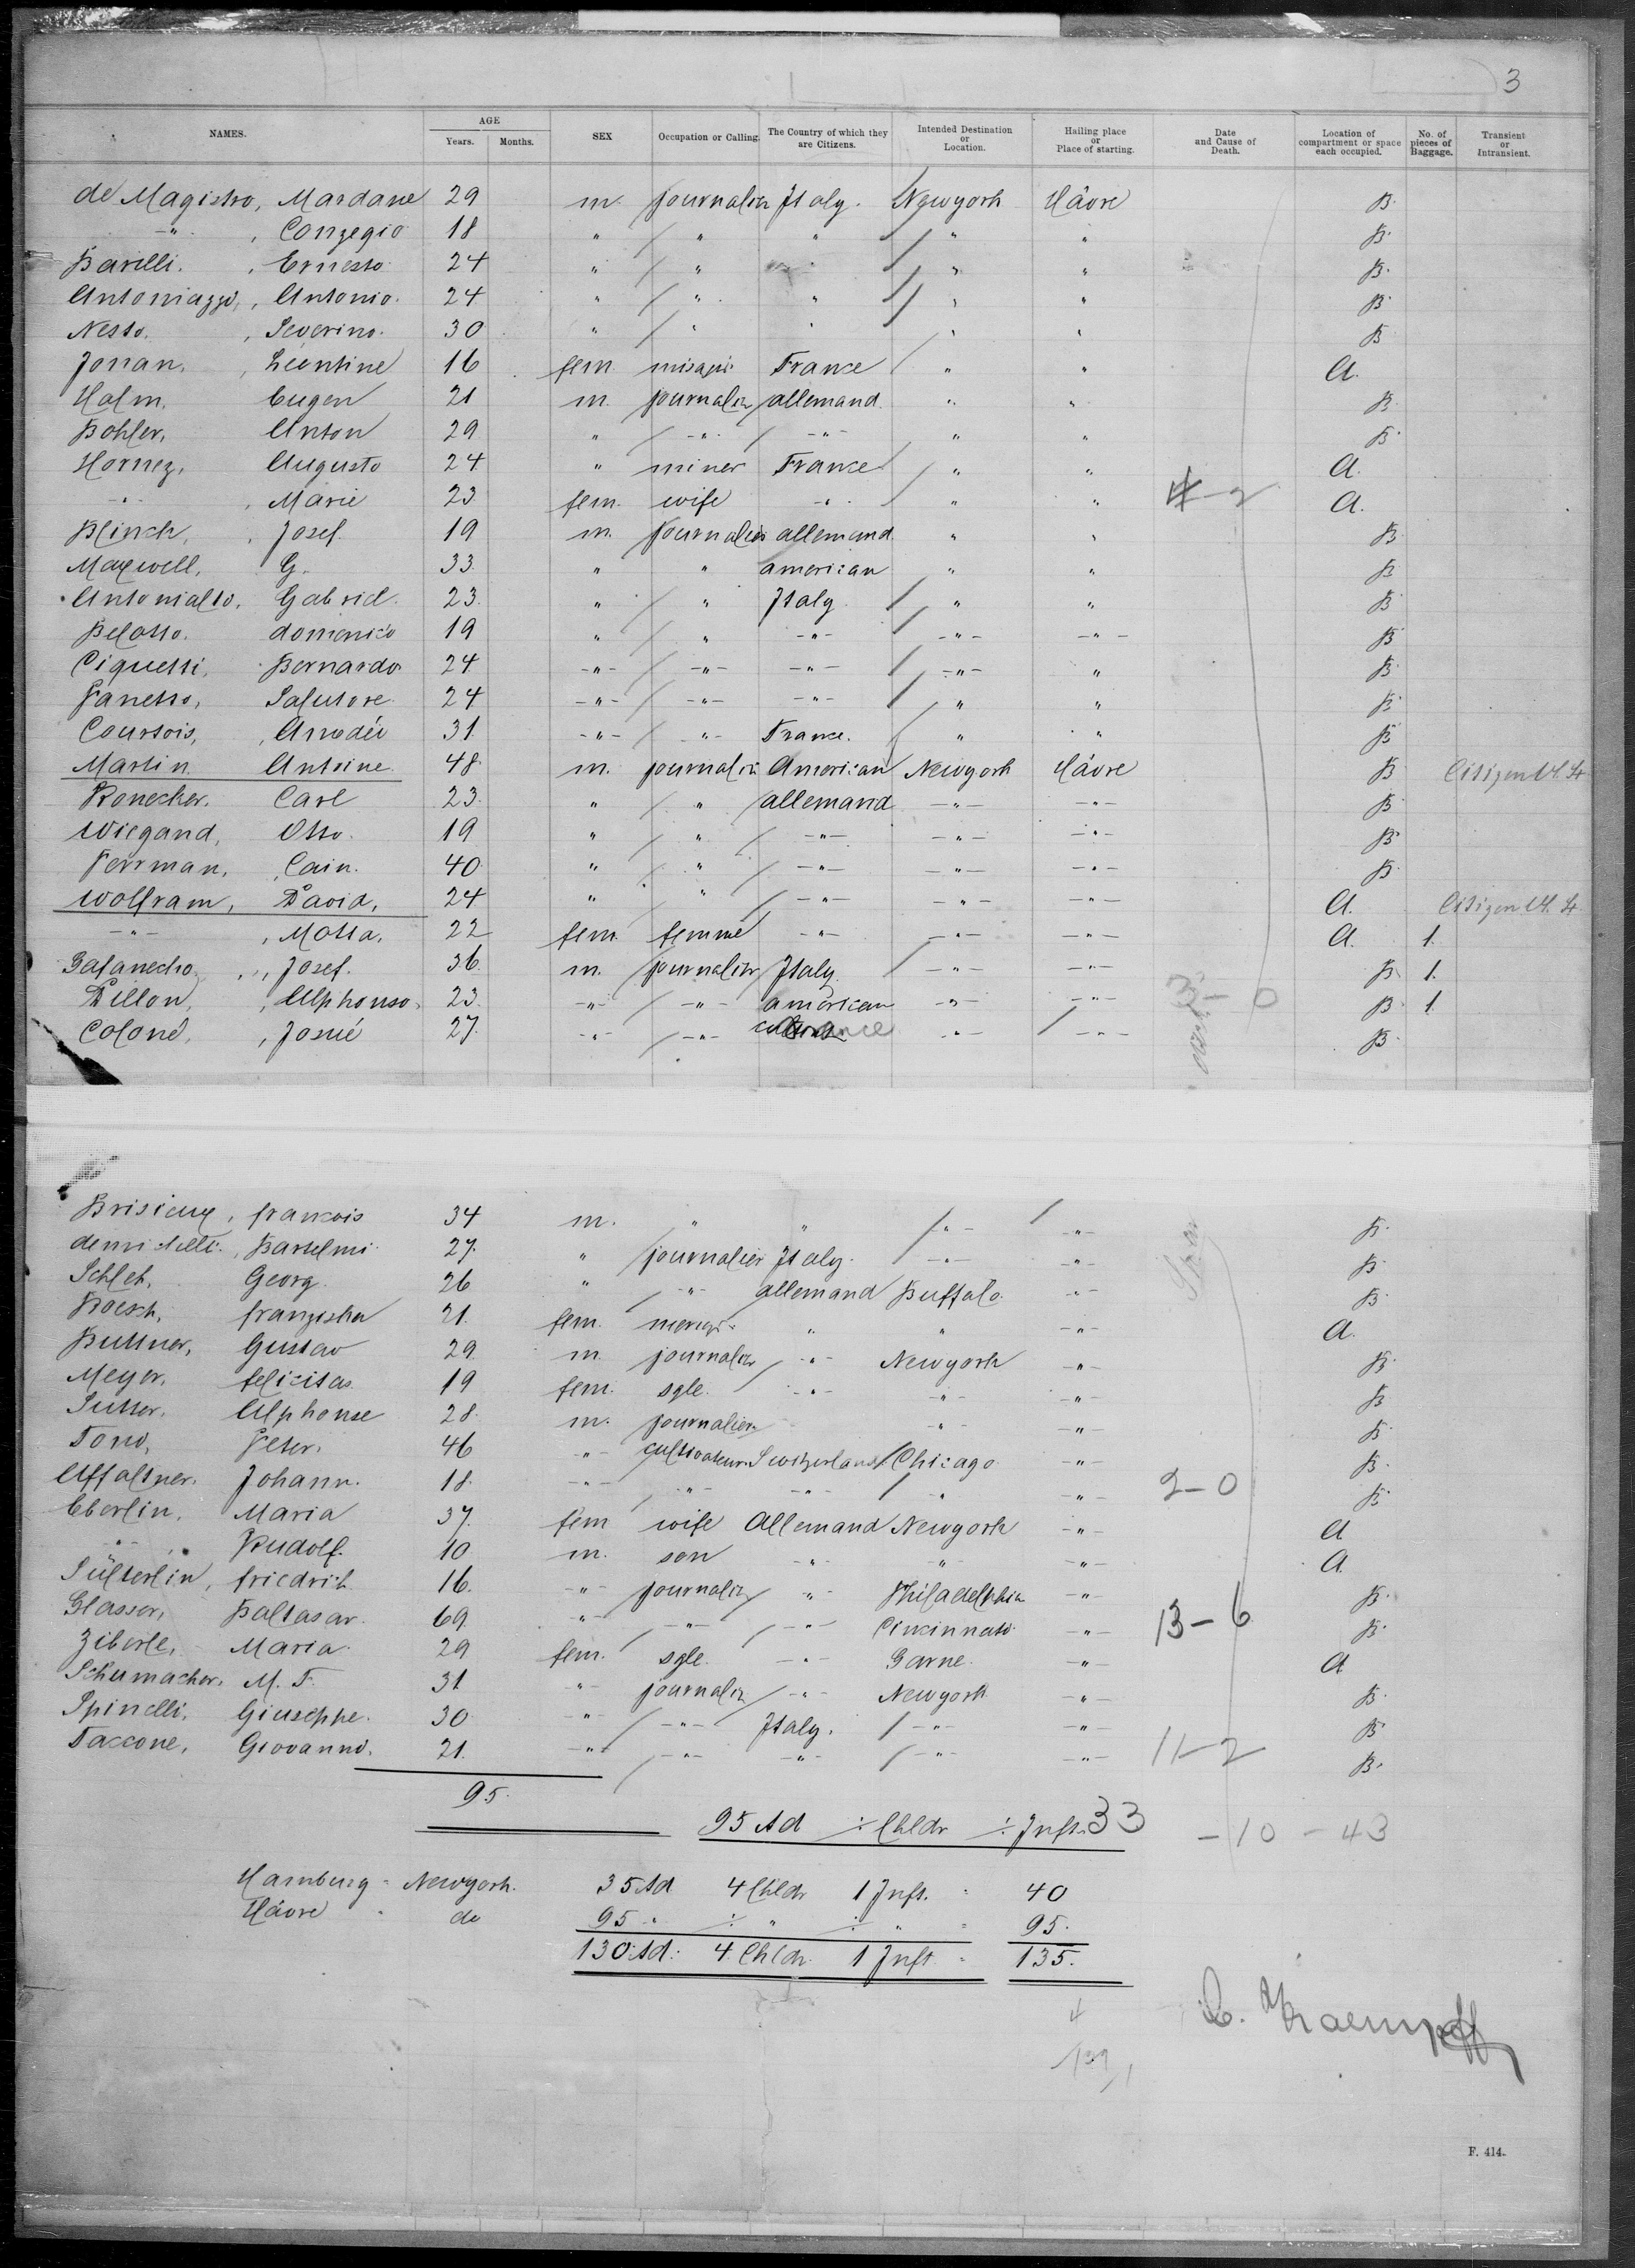 3
NAMES. AGE Years. Months. SEX Occupation or Calling. The Country of which they are Citizens. Intended Destination or Location. Hailing place or Place of starting. Date and Cause of Death. Location of compartment or space each occupied. No. of pieces of Baggage. Transient or Intransient.
de Magistro, Mardane 29 m journalier Italy. Newyork Hâvre B.
-"- , Conzegio 18 " " " " " B.
Barelli. , Ernesto 24 " " " " B.
Antoniazzi, , Antonio. 24 " " " " " B.
Nesto. , Severino. 30 " " " " " B
Jonan, , Léontine 16 fem France " " A.
Halm, Eugen 21 m. journalier allemand " " B.
Bohler, Anton 29 " -"- -"- " " B.
Hornez, Augusto 24 " miner France " " A.
-"- , Marie 23 fem. wife -"- " " A.
Blinck, , Josef. 19 m. journalier allemand " " B.
Maxwell, G. 33 " " american " " B
Antonialto, Gabriel. 23. " " Italy " " B
Belotto. domenico 19 " " -"- -"- -"- B
Ciquetti, Bernardo 24 -"- -"- -"- -"- " B
Panetto, Salutore 24 -"- -"- -"- " " B
Courtois, , Amedée 31. -"- -"- France. " " B
Martin Antoine 48. m. journalier American Newyork Hâvre B Citizen U. St.
Ronecker. Carl 23. " " allemand -"- -"- B
Wiegand, Otto. 19 " " -"- -"- -"- B
Perrman, , Cain. 40 " " -"- -"- -"- B
Wolfram, David, 24 " " -"- -"- -"- A. Citizen U. St.
-"- , Motta. 22 fem. femme -"- -"- -"- A. 1.
Galanecho, , Josef. 36 m. journalier Italy -"- -"- B 1.
Dillon, , Alphonso. 23. -"- -"- american -"- -"- 0 B 1
Coloné, , Josué 27. -"- -"- France -"- -"- B.
Brisieux, francois 34 m. " " -"- -"- B.
Bartelmi 27. " journalier Italy. -"- -"- B.
Schleh, Georg. 26 " -"- allemand Buffalo -"- B.
Boesch, franziska 21. fem. " " -"- A.
Buttner, Gustav 29. m journalier -"- Newyork -"- B.
Meyer, felicitas 19 fem. sgle. -"- -"- -"- B
Sutter, Alphonse 28. m. journalier -"- -"- B.
Peter. 46 -"- cultivateur. Switzerland Chicago -"- B.
Affaltner. Johann. 18. -"- -"- -"- " -"- 2-0 B.
Eberlin, Maria 37. fem wife Allemand Newyork -"- A
-"- , Rudolf. 10 m. son -"- -"- -"- A.
Sütterlin, friedrich 16. -"- journalier -"- Philadelphia -"- B.
Glasser, Baltasar. 69. -"- -"- -"- Cincinnati -"- 13-6 B.
Ziberle, Maria. 29 fem. sgle. -"- Garne. -"- A
Schumacher, M. F. 31 -"- journalier -"- Newyork -"- B.
Spinelli, Giuseppe. 30 -"- -"- Italy. -"- -"- B
Taccone, Giovanni. 21. -"- -"- -"- -"- -"- 11-2 B.
95.
95 Ad ÷ Chldr ÷ Inft. 33 -10 - 43
Hamburg - Newyork. 35 Ad 4 Chldr 1 Inft. = 40
Hâvre - do 95 " ÷ " ÷ " = 95.
130 Ad: 4 Chldr. 1 Inft = 135.
4
139
F. 414.